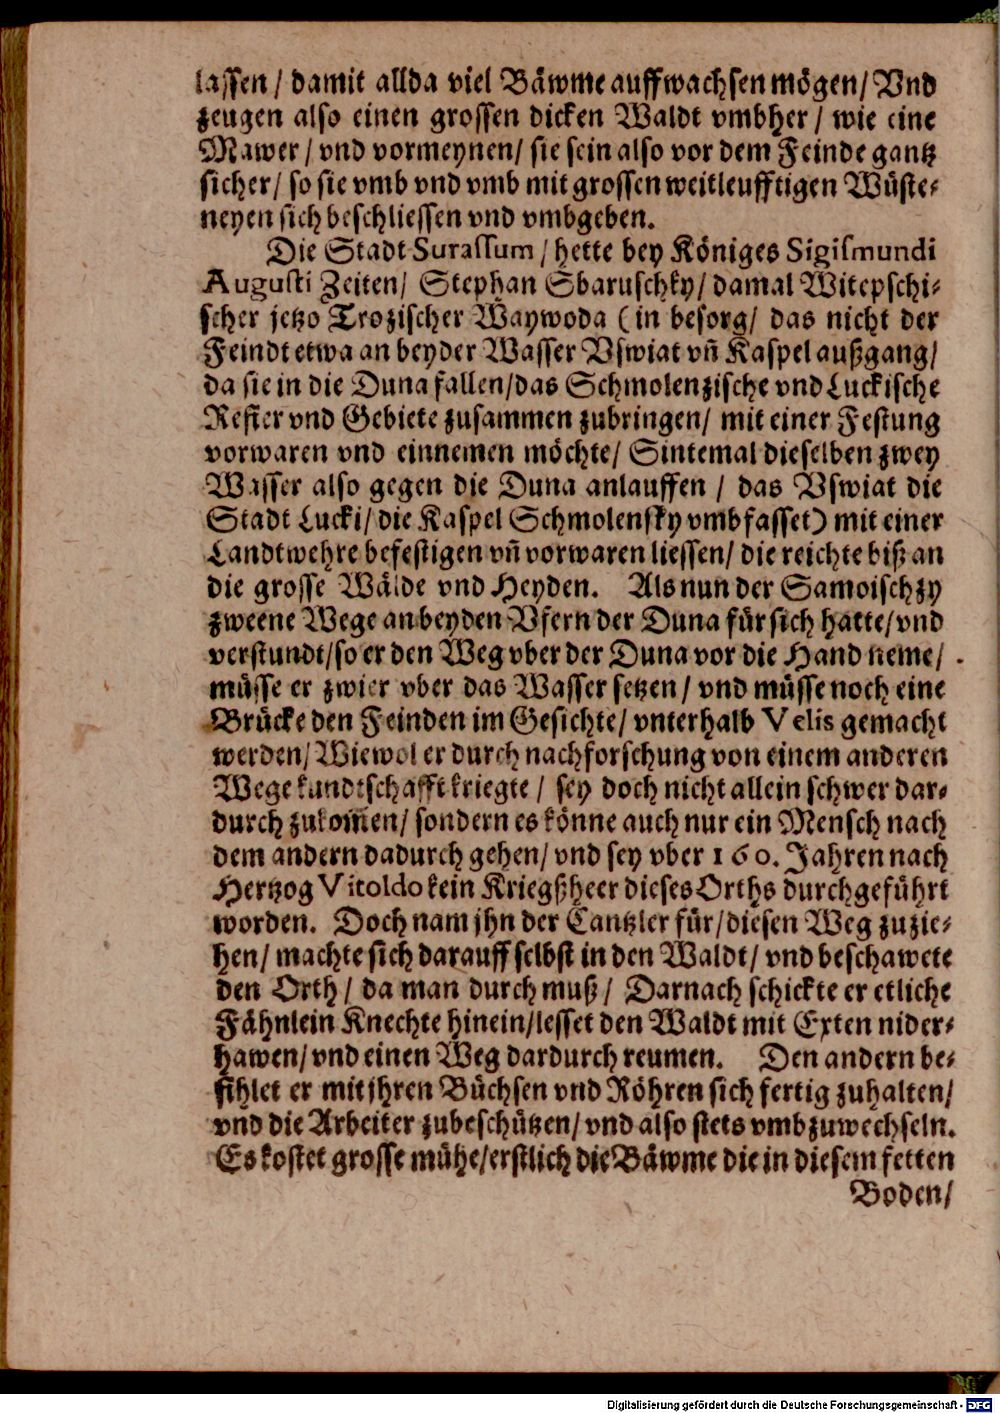 lassen / damit allda viel Bäwme auffwachsen mögen / Vnd
zeugen also einen grossen dicken Waldt vmbher / wie eine
Mawer / vnd vormeynen / sie sein also vor dem Feinde gantz
sicher / so sie vmb vnd vmb mit grossen weitleufftigen Wüste-
neyen sich beschliessen vnd vmbgeben.
Die Stadt Surassum / hette bey Königes Sigismundi
Augusti Zeiten / Stephan Sbaruschky / damal Witepschi-
scher jetzo Trozischer Waywoda ( in besorg / das nicht der
Feindt etwa an beyder Wasser Vswiat vñ Kaspel außgang /
da sie in die Duna fallen / das Schmolenzische vnd Luckische
Refier vnd Gebiete zusammen zubringen / mit einer Festung
vorwaren vnd einnemen möchte / Sintemal dieselben zwey
Wasser also gegen die Duna anlauffen / das Vswiat die
Stadt Lucki / die Kaspel Schmolensky vmbfasset) mit einer
Landtwehre befestigen vñ vorwaren liessen / die reichte biß an
die grosse Wälde vnd Heyden. Als nun der Samoischzy
zweene Wege an beyden Vfern der Duna für sich hatte / vnd
verstundt / so er den Weg vber der Duna vor die Hand neme /
müsse er zwier vber das Wasser setzen / vnd müsse noch eine
Brücke den Feinden im Gesichte / vnterhalb Velis gemacht
werden / Wiewol er durch nachforschung von einem anderen
Wege kundtschafft kriegte / sey doch nicht allein schwer dar-
durch zukom̃en / sondern es könne auch nur ein Mensch nach
dem andern dadurch gehen / vnd sey vber 160. Jahren nach
Hertzog Vitoldo kein Kriegßheer dieses Orths durchgeführt
worden. Doch nam jhn der Cantzler für / diesen Weg zuzie-
hen / machte sich darauff selbst in den Waldt / vnd beschawete
den Orth / da man durch muß / Darnach schickte er etliche
Fähnlein Knechte hinein / lesset den Waldt mit Exten nider-
hawen / vnd einen Weg dardurch reumen. Den andern be-
fihlet er mit jhren Büchsen vnd Röhren sich fertig zuhalten /
vnd die Arbeiter zubeschützen / vnd also stets vmbzuwechseln.
Es kostet grosse mühe / erstlich die Bäwme die in diesem fetten
Boden /
Digitalisierung gefördert durch die Deutsche Forschungsgemeinschaft - DFG